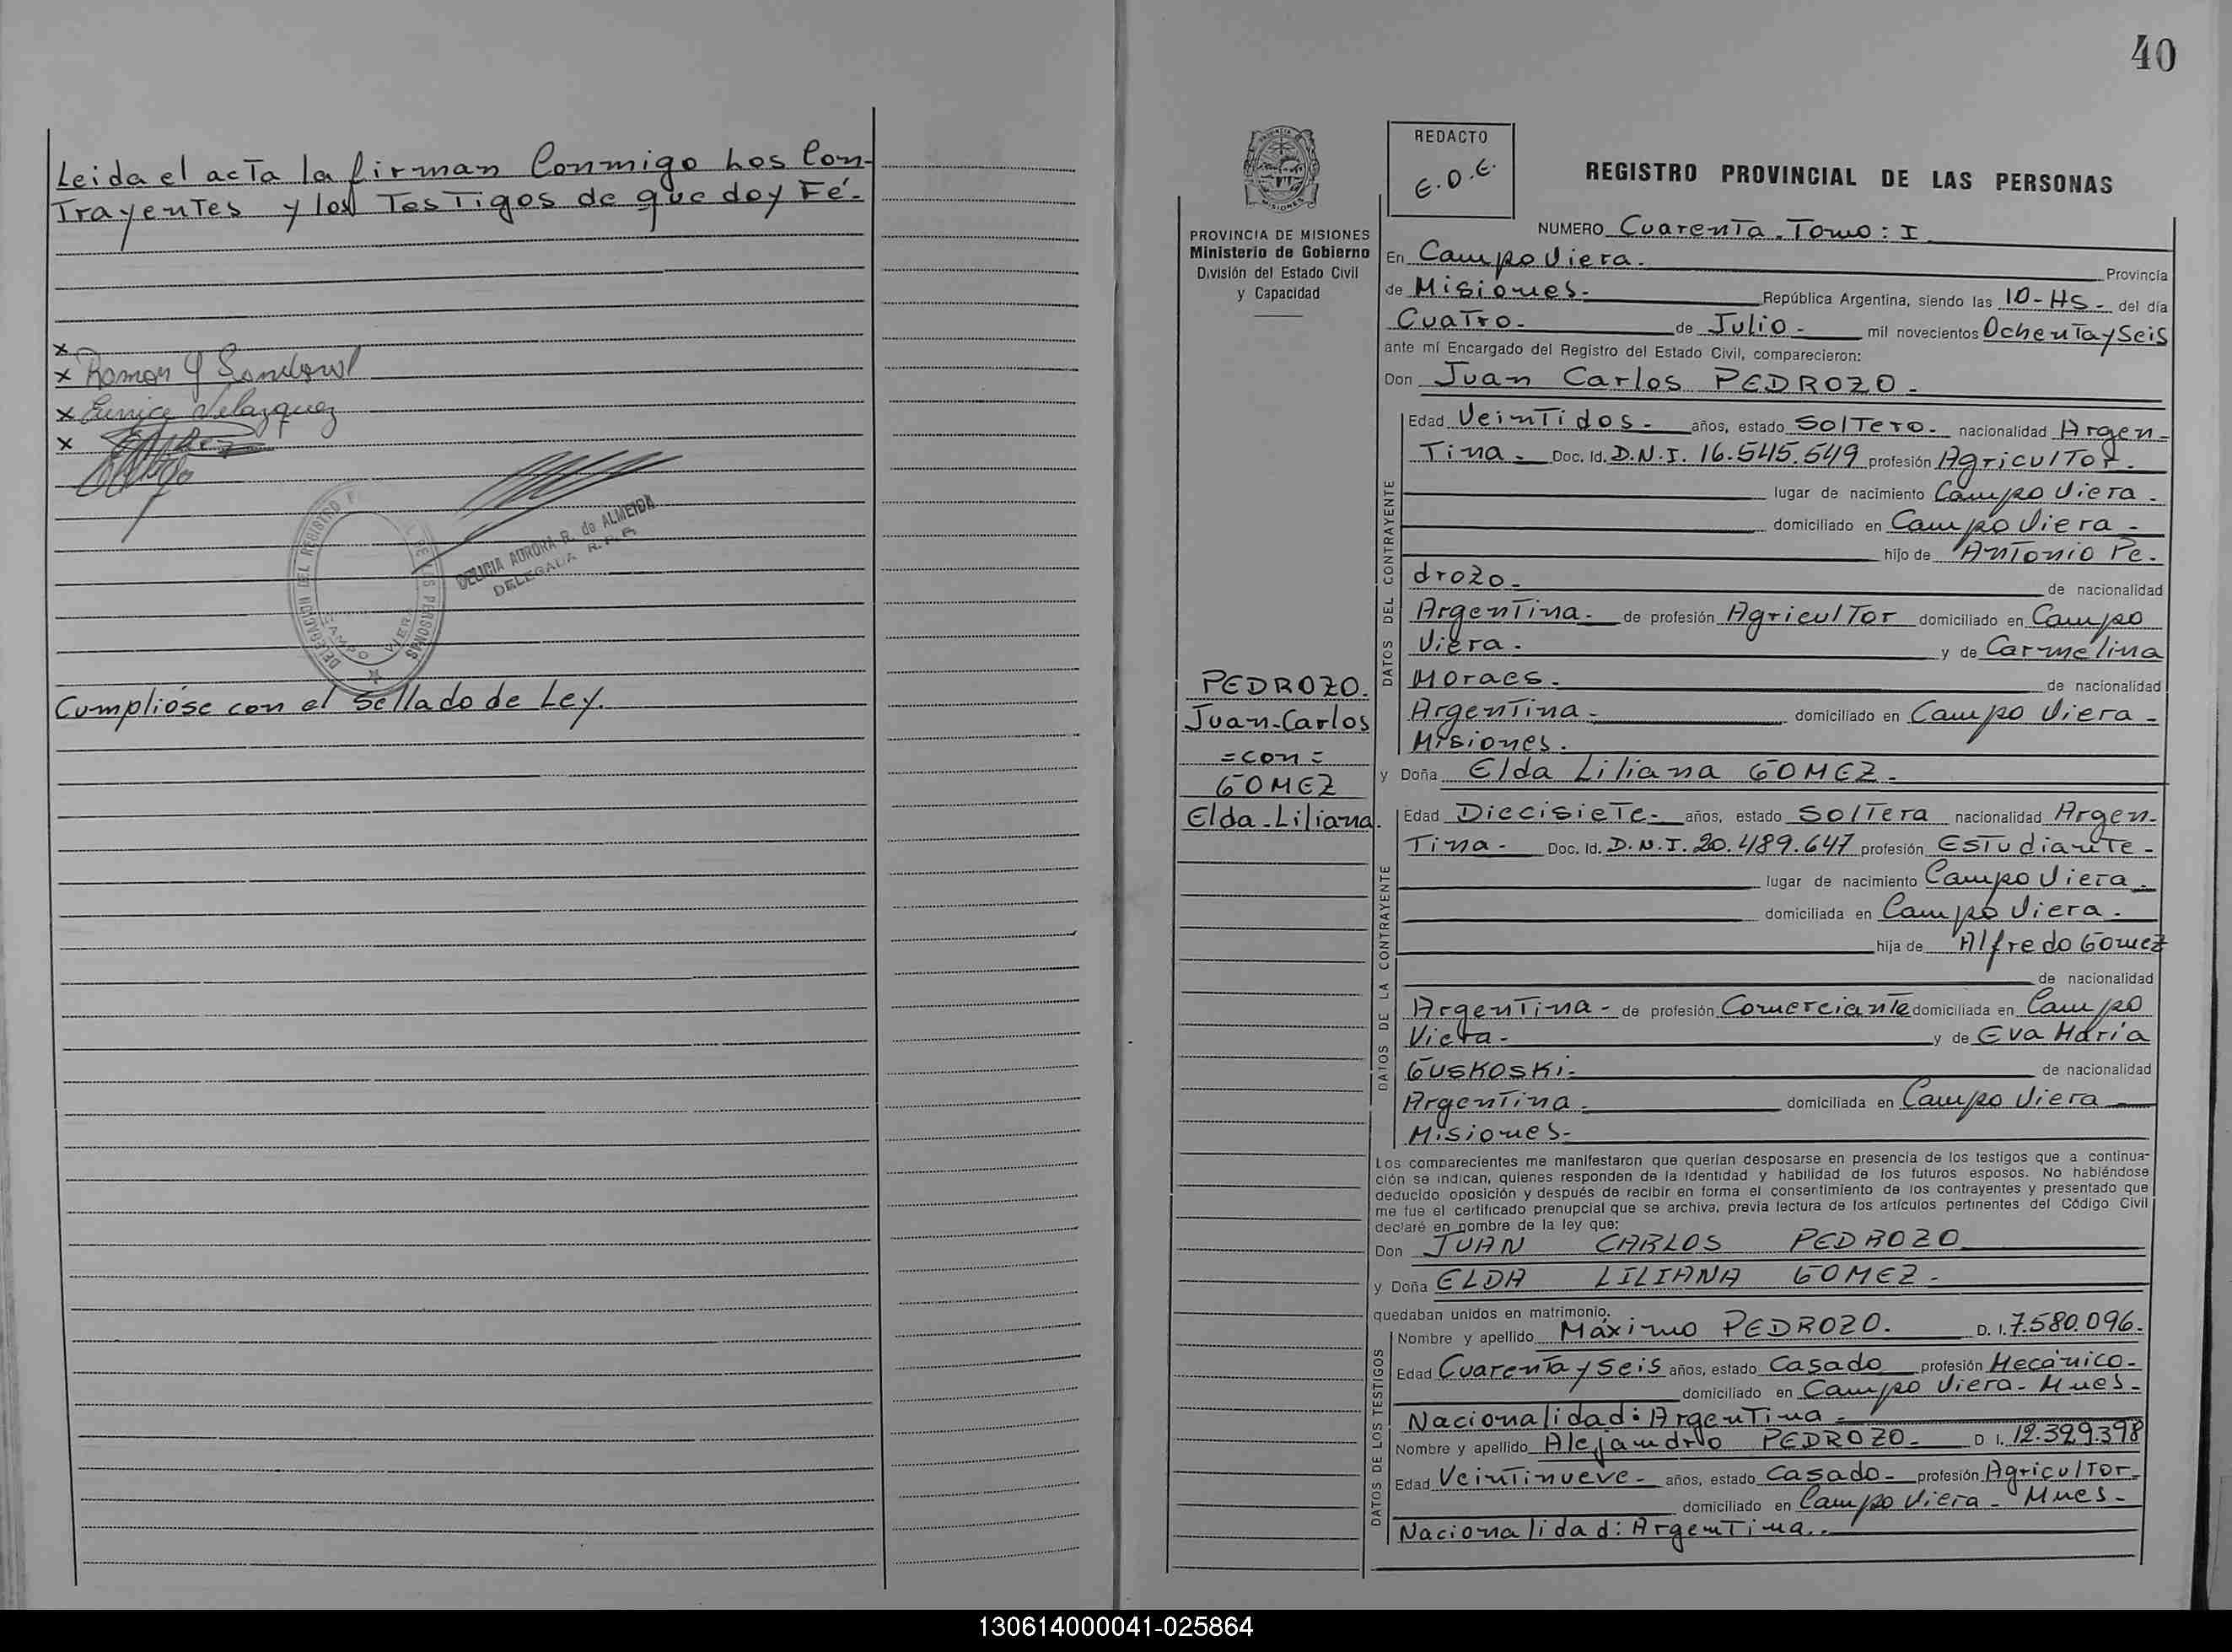 Leida el acta la firman Conmigo Los Con-
Trayentes y los Testigos de que doy Fé.-
x
x Ramon
x Eunice Velazquez
x
DELEGACION DEL REGISTRO P
L DE LAS PERSONAS
CAMPO VIERA
DELICIA AURORA R. de ALMEIDA
DELEGADA R.P.P.
Cumplióse con el Sellado de Ley.
40
PROVINCIA DE MISIONES
Ministerio de Gobierno
División del Estado Civil
y Capacidad
PEDROZO.
Juan-Carlos
=con=
GOMEZ
Elda-Liliana.
REDACTO
E.D.E.
REGISTRO PROVINCIAL DE LAS PERSONAS
NUMERO Cuarenta. Tomo: I
En Campo Viera. Provincia
de Misiones- República Argentina, siendo las 10-HS- del día
Cuatro- de Julio- mil novecientos Ochenta y Seis
ante mí Encargado del Registro del Estado Civil, comparecieron:
Don Juan Carlos PEDROZO-
DATOS DEL CONTRAYENTE
Edad Veintidos- años, estado Soltero- nacionalidad Argen-
Tina- Doc. Id. D.N.I. 16.545.549 profesión Agricultor-
lugar de nacimiento Campo Viera-
domiciliado en Campo Viera-
hijo de Antonio Pe-
drozo- de nacionalidad
Argentina- de profesión Agricultor domiciliado en Campo
Viera- y de Carmelina
Moraes- de nacionalidad
Argentina- domiciliado en Campo Viera-
Misiones.
y Doña Elda Liliana GOMEZ-
DATOS DE LA CONTRAYENTE
Edad Diecisiete- años, estado Soltera nacionalidad Argen-
Tina- Doc. Id. D.N.I. 20.489.647 profesión Estudiante-
lugar de nacimiento Campo Viera-
domiciliada en Campo Viera.
hija de Alfredo Gomez
de nacionalidad
Argentina- de profesión Comerciante domiciliada en Campo
Viera- y de Eva María
Guskoski- de nacionalidad
Argentina- domiciliada en Campo Viera
Misiones-
Los comparecientes me manifestaron que querían desposarse en presencia de los testigos que a continua-
ción se indican, quienes responden de la identidad y habilidad de los futuros esposos. No habiéndose
deducido oposición y después de recibir en forma el consentimiento de los contrayentes y presentado que
me fue el certificado prenupcial que se archiva, previa lectura de los artículos pertinentes del Código Civil
declaré en nombre de la ley que:
Don JUAN CARLOS PEDROZO
y Doña ELDA LILIANA GOMEZ-
quedaban unidos en matrimonio.
DATOS DE LOS TESTIGOS
Nombre y apellido Máximo PEDROZO. D. I. 7.580.096-
Edad Cuarenta y seis años, estado Casado profesión Mecánico-
domiciliado en Campo Viera- Mnes-
Nacionalidad: Argentina-
Nombre y apellido Alejandro PEDROZO- D I. 12.329.398
Edad Veintinueve- años, estado Casado- profesión Agricultor-
domiciliado en Campo Viera- Mnes-
Nacionalidad: Argentina.-
130614000041-025864